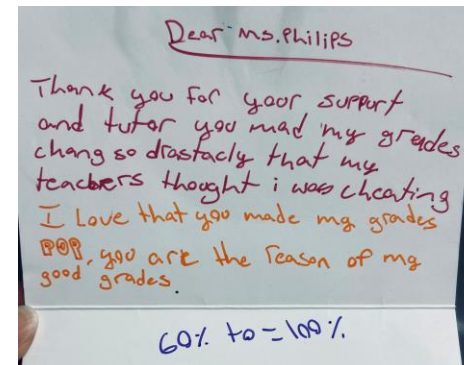 Dear Ms. Philips
Thank you for your support
and tutor you mad my grades
chang so drastacly that my
teachers thought i was cheating
I Love that you made my grades
POP, you are the reason of my
good grades.
60% to = 100%